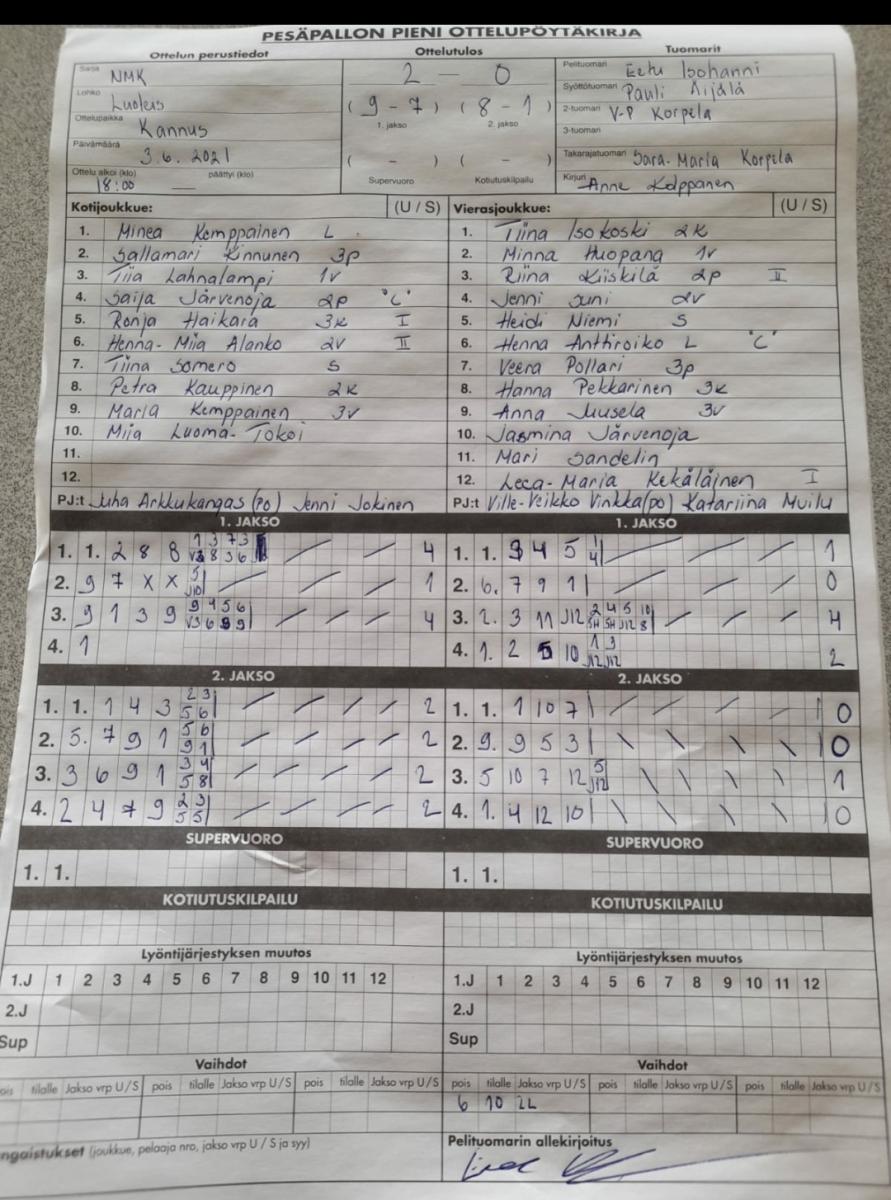 PESÄPALLON PIENI OTTELUPÖYTÄKIRJA
Ottelun perustiedot
Ottelutulos
Tuomarit
Sarja NMK
Lohko Luoleis
Ottelupaikka Kannus
Päivämäärä 3.6.2021
Ottelu alkoi (klo) 18:00 päättyi (klo)
2 - 0
( 9 - 7 ) ( 8 - 1 )
1. jakso 2. jakso
( - ) ( - )
Supervuoro Kotiutuskilpailu
Pelituomari Eetu Isohanni
Syöttötuomari Pauli Äijälä
2-tuomari V-P Korpela
3-tuomari
Takarajatuomari Sara-Maria Korpela
Kirjuri Anne Kolppanen
Kotijoukkue: (U / S)
1. Minea Kemppainen L
2. Sallamari Kinnunen 3p
3. Tiia Lahnalampi 1v
4. Saija Järvenoja 2p "C"
5. Ronja Haikara 3k I
6. Henna-Miia Alanko 2v II
7. Tiina Somero S
8. Petra Kauppinen 2k
9. Maria Kemppainen 3v
10. Miia Luoma-Tokoi
11.
12.
PJ:t Juha Arkkukangas (po) Jenni Jokinen
Vierasjoukkue: (U / S)
1. Tiina Isokoski 2k
2. Minna Huopana 1v
3. Riina Kiiskilä 2p II
4. Jenni Juni 2v
5. Heidi Niemi S
6. Henna Anttiroiko L "C"
7. Veera Pollari 3p
8. Hanna Pekkarinen 3k
9. Anna Juusela 3v
10. Jasmina Järvenoja
11. Mari Sandelin
12. Leea-Maria Kekäläinen I
PJ:t Ville-Veikko Vinkka (po) Katariina Muilu
1. JAKSO
1. 1. 2 8 8 4
2. 9 7 X X 5 J10 1
3. 9 1 3 9 9 4 5 6 4
4. 1
1. JAKSO
1. 1. 4 5 1
2. 6. 7 9 1 0
3. 2. 3 11 J12 2 4 5 10 5H 5H J12 8 4
4. 1. 2 5 10 1 3 J12 J12 2
2. JAKSO
1. 1. 1 4 3 2 3 5 6 2
2. 5. 7 9 1 5 6 9 1 2
3. 3 6 9 1 3 4 5 8 2
4. 2 4 7 9 2 3 5 5 2
2. JAKSO
1. 1. 1 10 7 0
2. 9. 9 5 3 0
3. 5 10 7 12 5 J12 1
4. 1. 4 12 10 0
SUPERVUORO
1. 1.
SUPERVUORO
1. 1.
KOTIUTUSKILPAILU
KOTIUTUSKILPAILU
Lyöntijärjestyksen muutos
1.J 1 2 3 4 5 6 7 8 9 10 11 12
2.J
Sup
Lyöntijärjestyksen muutos
1.J 1 2 3 4 5 6 7 8 9 10 11 12
2.J
Sup
Vaihdot
pois tilalle Jakso vrp U/S pois tilalle Jakso vrp U/S pois tilalle Jakso vrp U/S
Vaihdot
pois tilalle Jakso vrp U/S pois tilalle Jakso vrp U/S pois tilalle Jakso vrp U/S
6 10 2L
ngaistukset (joukkue, pelaaja nro, jakso vrp U / S ja syy)
Pelituomarin allekirjoitus